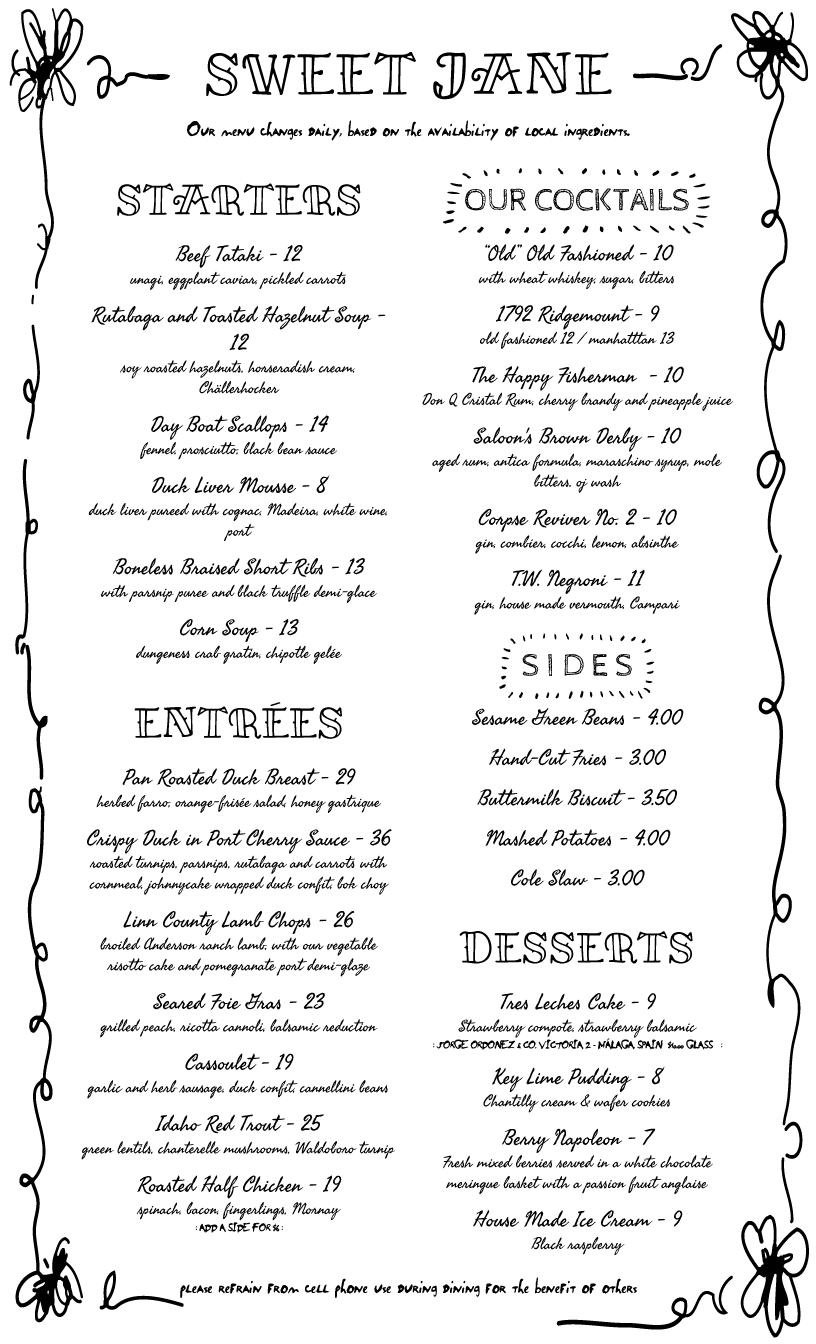 SWEET JANE
Our menu changes daily, based on the availability of local ingredients.
STARTERS
Beef Tataki - 12
unagi, eggplant caviar, pickled carrots
Rutabaga and Toasted Hazelnut Soup -
12
soy roasted hazelnuts, horseradish cream,
Chällerhocker
Day Boat Scallops - 14
fennel, prosciutto, black bean sauce
Duck Liver Mousse - 8
duck liver pureed with cognac, Madeira, white wine,
port
Boneless Braised Short Ribs - 13
with parsnip puree and black truffle demi-glace
Corn Soup - 13
dungeness crab gratin, chipotle gelée
ENTRÉES
Pan Roasted Duck Breast - 29
herbed farro, orange-frisée salad, honey gastrique
Crispy Duck in Port Cherry Sauce - 36
roasted turnips, parsnips, rutabaga and carrots with
cornmeal, johnnycake wrapped duck confit, bok choy
Linn County Lamb Chops - 26
broiled Anderson ranch lamb, with our vegetable
risotto cake and pomegranate port demi-glaze
Seared Foie Gras - 23
grilled peach, ricotta cannoli, balsamic reduction
Cassoulet - 19
garlic and herb sausage, duck confit, cannellini beans
Idaho Red Trout - 25
green lentils, chanterelle mushrooms, Waldoboro turnip
Roasted Half Chicken - 19
spinach, bacon, fingerlings, Mornay
: ADD A SIDE FOR $6 :
OUR COCKTAILS
"Old" Old Fashioned - 10
with wheat whiskey, sugar, bitters
1792 Ridgemount - 9
old fashioned 12 / manhatttan 13
The Happy Fisherman - 10
Don Q Cristal Rum, cherry brandy and pineapple juice
Saloon's Brown Derby - 10
aged rum, antica formula, maraschino syrup, mole
bitters, oj wash
Corpse Reviver No. 2 - 10
gin, combier, cocchi, lemon, absinthe
T.W. Negroni - 11
gin, house made vermouth, Campari
SIDES
Sesame Green Beans - 4.00
Hand-Cut Fries - 3.00
Buttermilk Biscuit - 3.50
Mashed Potatoes - 4.00
Cole Slaw - 3.00
DESSERTS
Tres Leches Cake - 9
Strawberry compote, strawberry balsamic
: JORGE ORDONEZ & CO. VICTORIA 2 - MÁLAGA, SPAIN GLASS :
Key Lime Pudding - 8
Chantilly cream & wafer cookies
Berry Napoleon - 7
Fresh mixed berries served in a white chocolate
meringue basket with a passion fruit anglaise
House Made Ice Cream - 9
Black raspberry
please refrain from cell phone use during dining for the benefit of others